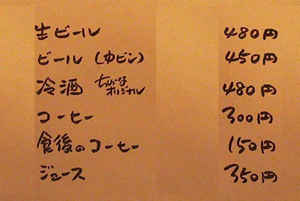 生ビール 480円
ビール (中ビン) 450円
冷酒 オリジナル 480円
コーヒー 300円
食後のコーヒー 150円
ジュース 350円